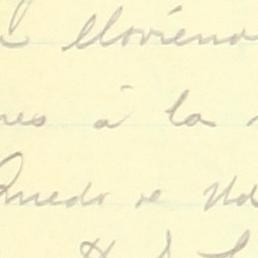 lloviend
nes á la
Quedo de Ud
H. S.